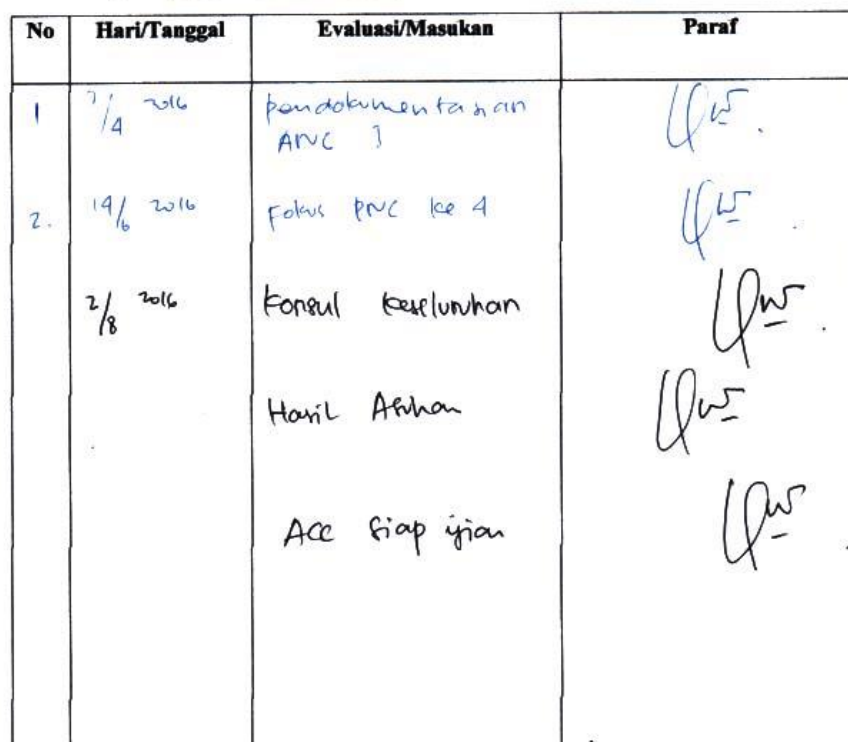 No Hari/Tanggal Evaluasi/Masukan Paraf
1 7/4 2016 pendokumentasian
ANC 3
2. 14/6 2016 Fokus PNC ke 4
2/8 2016 Konsul keseluruhan
Hasil Asuhan
ACC Siap ujian